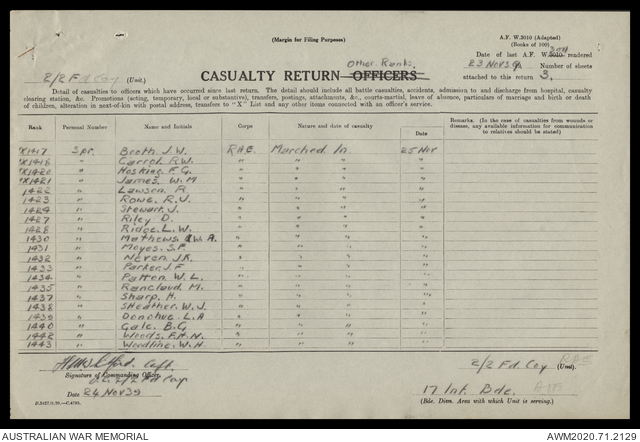 (Margin for Filing Purposes)
A.F. W.3010 (Adapted)
(Books of 100)
Date of last A.F. W.3010 rendered
23 Nov 39 Number of sheets
attached to this return 3.
2/2 Fd Coy (Unit.)
Other Ranks
CASUALTY RETURN OFFICERS
Detail of casualties to officers which have occurred since last return. The detail should include all battle casualties, accidents, admission to and discharge from hospital, casualty
clearing station, &c. Promotions (acting, temporary, local or substantive), transfers, postings, attachments, &c., courts-martial, leave of absence, particulars of marriage and birth or death
of children, alteration in next-of-kin with postal address, transfers to "X" List and any other items connected with an officer's service.
Rank Personal Number Name and Initials Corps Nature and date of casualty Date Remarks. (In the case of casualties from wounds or disease, any available information for communication to relatives should be stated)
X1417 Spr. Booth J.W. RAE. Marched In 25 Nov
X1418 " Carrol R.W. " " " "
X1420 " Hosking F.G. " " " "
X1421 " James W.M " " " "
1422 " Lawson R " " " "
1423 " Rowe R.J. " " " "
1424 " Stewart J. " " " "
1427 " Riley D. " " " "
1428 " Ridge L.W. " " " "
1430 " Mathews W.A. " " " "
1431 " Moyes. S.P. " " " "
1432 " Neven J.K. " " " "
1433 " Parker J.F " " " "
1434 " Patten W.L. " " " "
1435 " Rancloud M. " " " "
1437 " Sharp. H. " " " "
1438 " Sheather W.J. " " " "
1439 " Donohue L.A " " " "
1440 " Gale B.G " " " "
1442 " Woods. F.H.N. " " " "
1443 " Woodline. W.H. " " " "
Capt.
Signature of Commanding Officer.
O.C. 2/2 Fd Coy
Date 24 Nov 39
2/2 Fd. Coy RAE (Unit).
17 Inf. Bde. AIF
(Bde. Divn. Area with which Unit is serving.)
AUSTRALIAN WAR MEMORIAL
AWM2020.71.2129